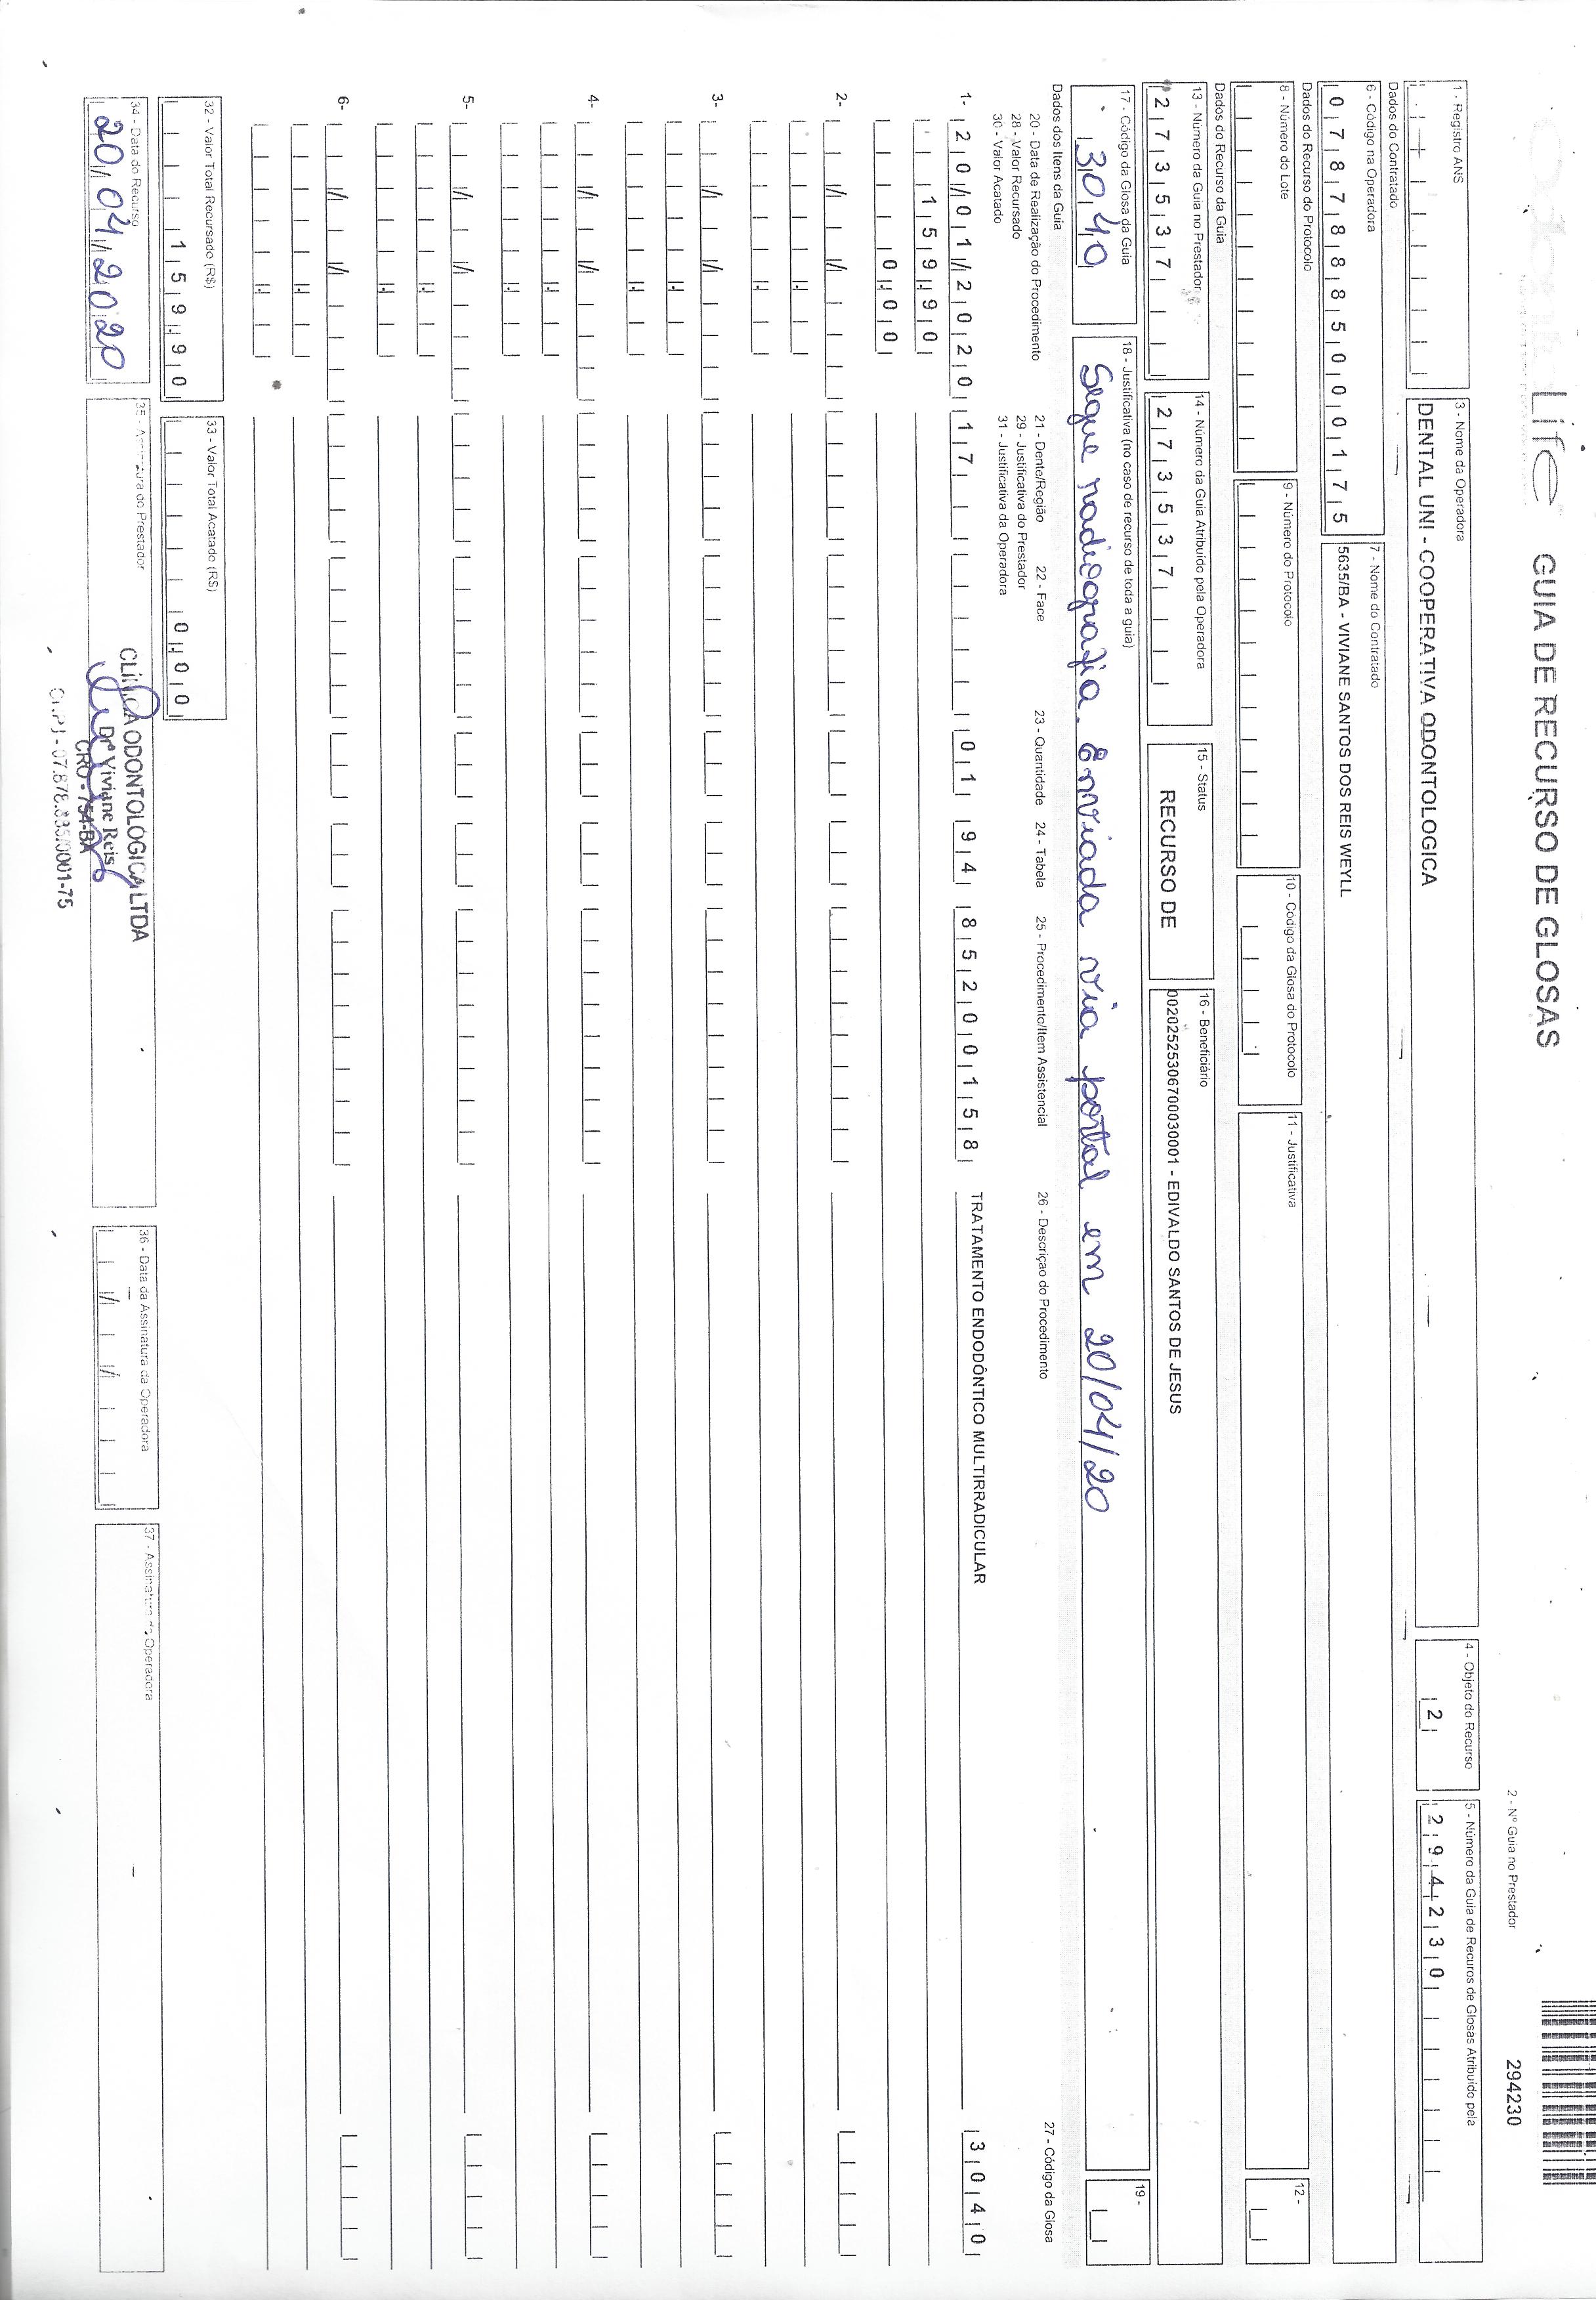 Life GUIA DE RECURSO DE GLOSAS
2 - Nº Guia no Prestador 294230
1 - Registro ANS
3 - Nome da Operadora
DENTAL UNI - COOPERATIVA ODONTOLOGICA
4 - Objeto do Recurso
2
5 - Número da Guia de Recuros de Glosas Atribuído pela
294230
Dados do Contratado
6 - Código na Operadora
07878885000175
7 - Nome do Contratado
5635/BA - VIVIANE SANTOS DOS REIS WEYLL
Dados do Recurso do Protocolo
8 - Número do Lote
9 - Número do Protocolo
10 - Código da Glosa do Protocolo
11 - Justificativa
12 -
Dados do Recurso da Guia
13 - Número da Guia no Prestador
2735537
14 - Número da Guia Atribuido pela Operadora
2735537
15 - Status
RECURSO DE
16 - Beneficiário
00202525306700030001 - EDIVALDO SANTOS DE JESUS
17 - Código da Glosa da Guia
3040
18 - Justificativa (no caso de recurso de toda a guia)
Segue radiografia. Enviada via portal em 20/04/20
19 -
Dados dos Itens da Guia
20 - Data de Realização do Procedimento 21 - Dente/Região 22 - Face 23 - Quantidade 24 - Tabela 25 - Procedimento/Item Assistencial 26 - Descriçao do Procedimento 27 - Código da Glosa
28 - Valor Recursado 29 - Justificativa do Prestador
30 - Valor Acatado 31 - Justificativa da Operadora
1- 20/01/2020 17 01 94 85200158 TRATAMENTO ENDODÔNTICO MULTIRRADICULAR 3040
159.90
0.00
2-
3-
4-
5-
6-
32 - Valor Total Recursado (R$)
159.90
33 - Valor Total Acatado (R$)
0.00
34 - Data do Recurso
20/04/2020
35 - Assinatura do Prestador
CLINICA ODONTOLOGICA LTDA
Drª Viviane Reis
36 - Data da Assinatura da Operadora
37 - Assinatura da Operadora